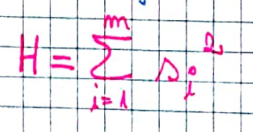 H = \sum_{i=1}^{m} s_i^2